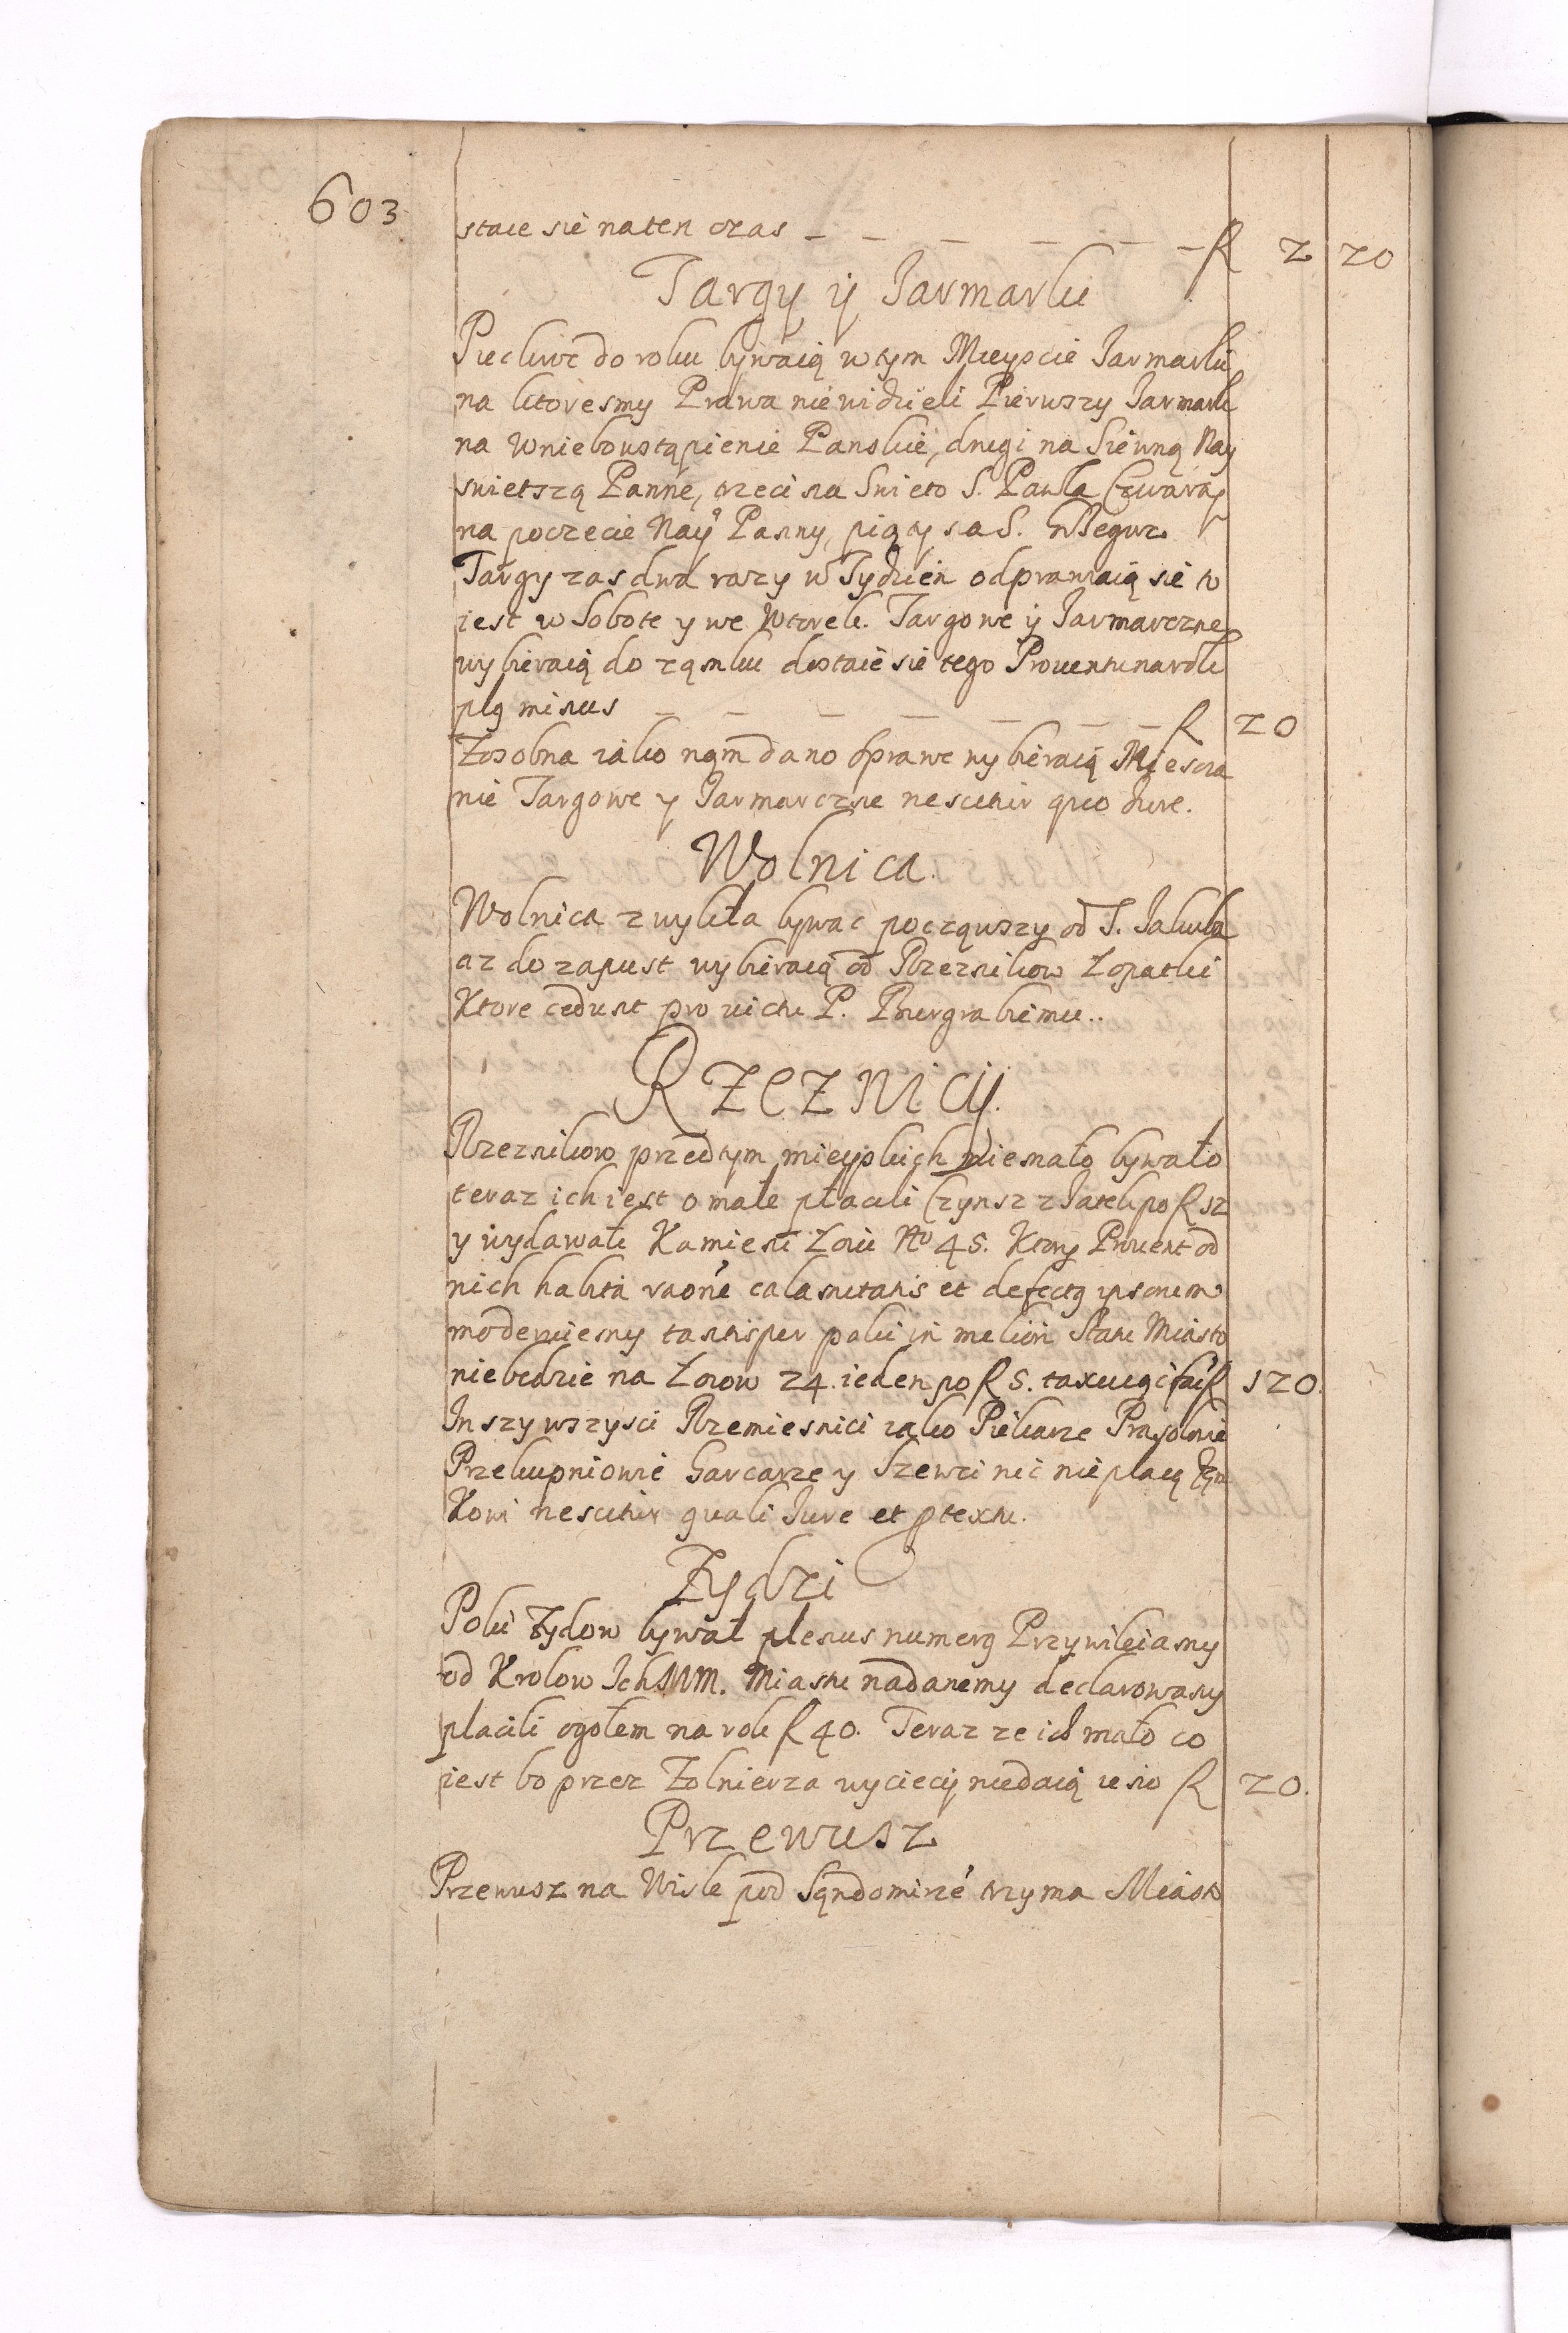 603
staie sie na ten czas — — — — — — f 2 20
Targy y Jarmarki
Piec kroc do roku bywaią w tym Mieyscie Jarmarki
na ktoresmy Prawa nie widzieli Pierwszy Jarmark
na Wniebowstąpienie Panskie, drugi na Siewną Nay
swietszą Panne, trzeci na Swieto S. Pawła Czwarty
na poczecie Nay Panny, piąty na S.
Targy zas dwa razy w Tydzien odprawuią sie to
iest w Sobote y we Wtorek. Targowe y Jarmarczne
wybieraią do zamku dostaie sie tego Prouentu na rok
plg minus — — — — — — — f 20
Zosobna iako nam dano sprawe wybieraią Miescza
nie Targowe y Jarmarczne nescitur quo Jure.
Wolnica.
Wolnica zwykła bywac począwszy od S. Jakuba
az do zapust wybieraią od Rzeznikow Łopatki
Ktore cedunt pro victu P. Burgrabiemu..
RZEZNICY.
Rzeznikow przedtym mieyskich niemało bywało
teraz ich iest o małe płacili Czynsz z Jatek po f 12
y wydawali Kamieni Łoiu No 45. Ktory Prouent od
nich habita raone calamitatis et defectg ipsorum
moderuiemy tantisper poki in meliori Statu Miasto
niebedzie na Łoiow 24. ieden po f 5. taxuiąc f 120.
Inszy wszysci Rzemiesnici iako Piekarze Prasołowie
Przekupniowie Garcarze y Szewci nic nie płacą Zam
kowi nescitur quali Jure et ptextu.
Zydzi
Poki Zydow bywał plenus numerg Przywileiamy
od Krolow Ich MM. Miastu nadanemy declarowany
płacili ogołem na rok f 40. Teraz ze ich mało co
iest bo przez Zolnierza wycieci niedaią ieno f 20.
Przewusz
Przewusz na Wisle pod Sandomirze trzyma Miasto